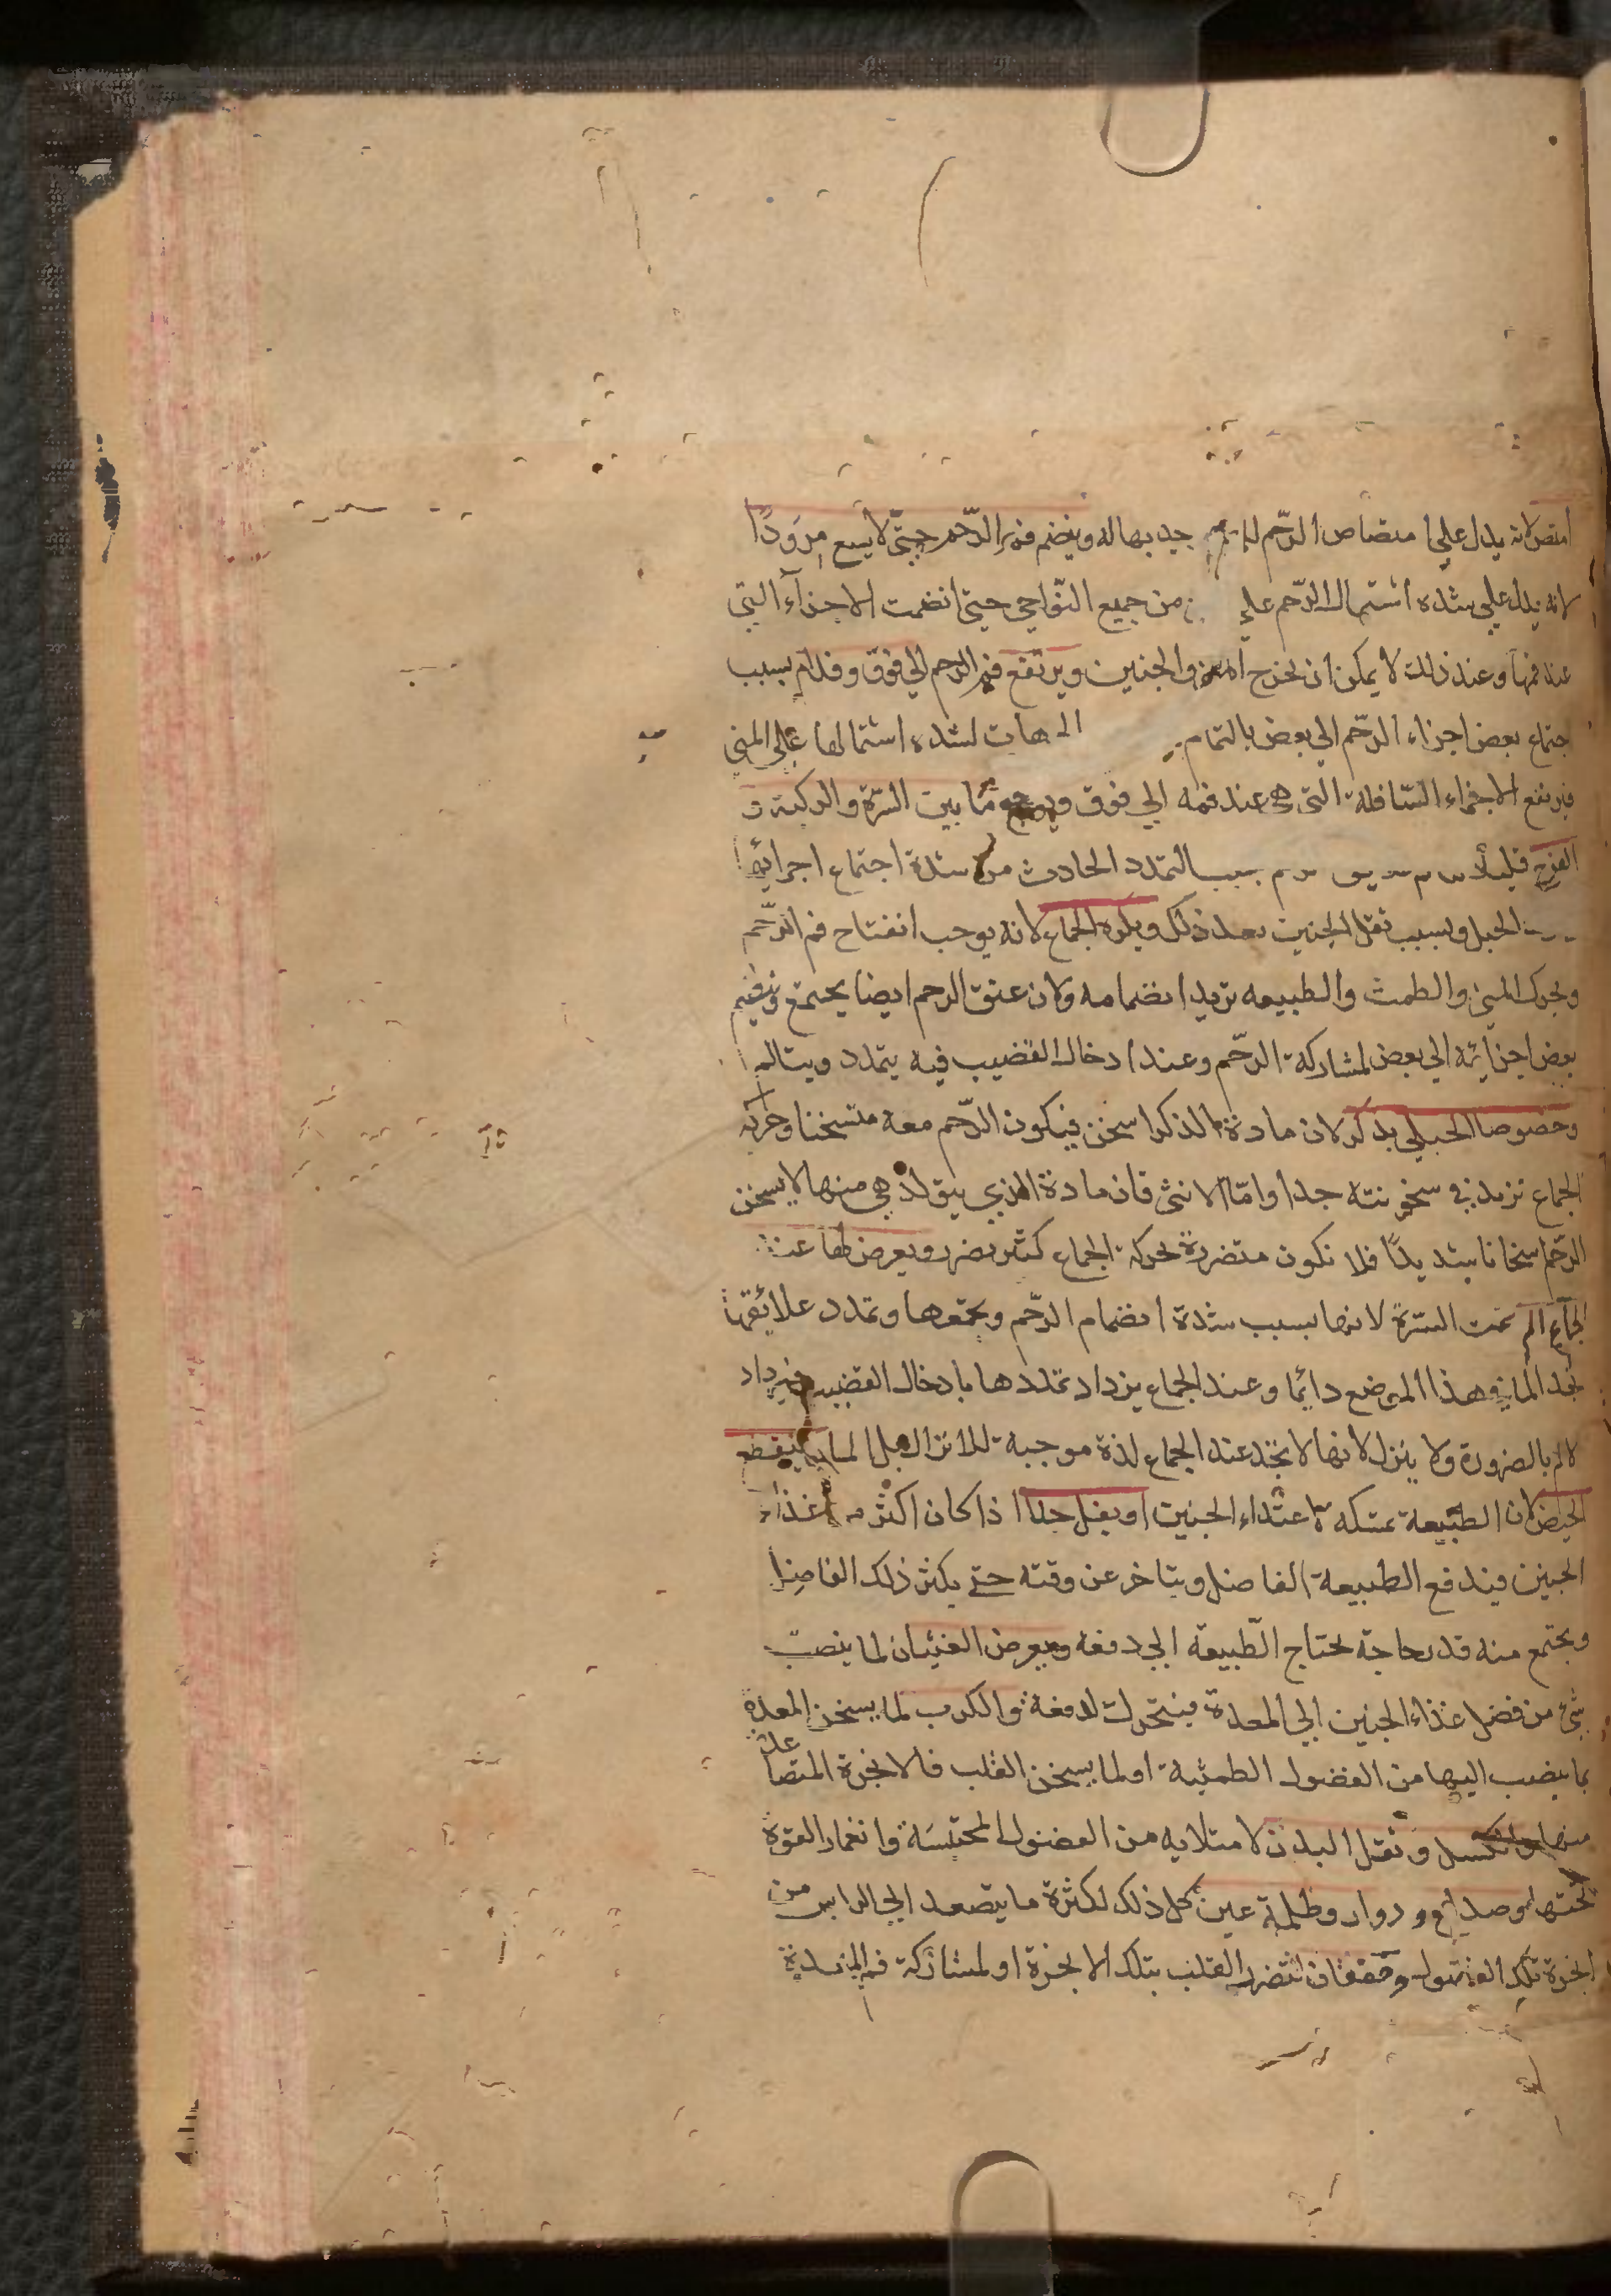 امتص لانه يدل علي امتصاص الرّحم جذبها له وينضم فم الرّحم حتّي لا يسع مرودًا
لانه يدل علي شدة اشتمال الرّحم علي من جميع النّواحي حتي انضمت الاجزآء التي
عند فمها وعند ذلك لا يمكن ان يخرج المني والجنين ويرتفع فم الرحم الي فوق وقدام بسبب
اجتماع بعض اجزاء الرّحم الي بعض بالتمام لشدة اشتمالها علي المني
فيرتفع الاجزاء السّافلة التي هي عند فمه الي فوق ويوجع ما بين السّرة والركبة و
الفرج قليلاً بسبب التمدد الحادث من شدة اجتماع اجزائه
الحبل وبسبب ثقل الجنين بعد ذلك ويكره الجماع لانه يوجب انفتاح فم الرّحم
وتحرك المني والطمث والطبيعه تريد انضمامه وكان عنق الرحم ايضا يجتمع وينضم
بعض اجزائه الي بعض لمشاركة الرّحم وعند ادخال القضيب فيه يتمدد ويتالم
وخصوصا الحبلي بذكر لان مادة الذكر اسخن فيكون الرّحم معه متسخنا وحركه
الجماع تزيد في سخونته جدا وامّا الانثي فان مادة الذي يتولد هي منها لا يسخن
الرّحم اسخانا شديدًا فلا تكون متضررة بحركة الجماع كثير ضرر ويعرض لها عند
الجماع الم تحت السّرة لانها بسبب شدة انضمام الرّحم وتجمّعها وتمدد علائقها
تجد الما في هذا الموضع دائما وعند الجماع يزداد تمددها بادخال القضيب فيزداد
الالم بالضرورة ولا ينزل لانها لا تجد عند الجماع لذة موجبة للانزال بل الما وينقطع
الحيض لان الطبيعة تمسكه لاغتذاء الجنين او يقل جدا اذا كان اكثر من غذاء
الجنين فيدفع الطبيعة الفاضل ويتاخر عن وقته حتي يكثر ذلك الفاضل
ويجتمع منه قدر حاجة يحتاج الطّبيعة الي دفعه ويعرض الغثيان لما ينصب
شئ من فضل غذاء الجنين الي المعدة فيتحرك لدفعه والكرب لما يسخن المعدة
بما ينصب اليها من الفضول الطمثية او لما يسخن القلب فالابخرة المتصاعدة
منها وكسل وثقل البدن لامتلايه من الفضول المحتبسة وانغمار القوة
تحتها وصداع ودوار وظلمة عين كل ذلك لكثرة ما يتصعد الي الراس من
ابخرة تلك الفضول وخفقان لتضرر القلب بتلك الابخرة او لمشاركة فم المعدة